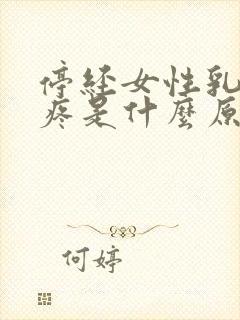 停經女性乳
疼是什麼原
何婷